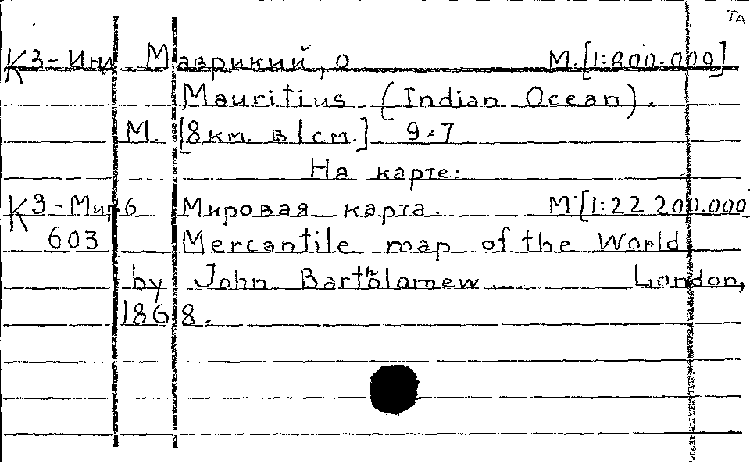 ТА
К3-Инд Маврикий, о М.[1:800.000]
Mauritius (Indian Ocean).
М. [8км. в 1см.] 9×7
На карте:
К3-Мир6 Мировая карта. М[1:22 200.000
603 Mercantile map of the World
by John Bartholomew London,
1868.